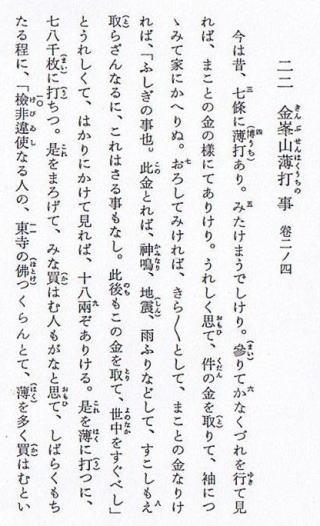 二二 金峯山薄打事 卷二ノ四
今は昔、七條に薄打あり。みたけまうでしけり。參りてかなくづれを行て見
れば、まことの金の樣にてありけり。うれしく思て、件の金を取りて、袖につ
ゝみて家にかへりぬ。おろしてみければ、きら〳〵として、まことの金なりけ
れば、「ふしぎの事也。此金とれば、神鳴、地震、雨ふりなどして、すこしもえ
取らざんなるに、これはさる事もなし。此後もこの金を取て、世中をすぐべし」
とうれしくて、はかりにかけて見れば、十八兩ぞありける。是を薄に打つに、
七八千枚に打ちつ。是をまろげて、みな買はむ人もがなと思て、しばらくもち
たる程に、「檢非違使なる人の、東寺の佛つくらんとて、薄を多く買はむとい